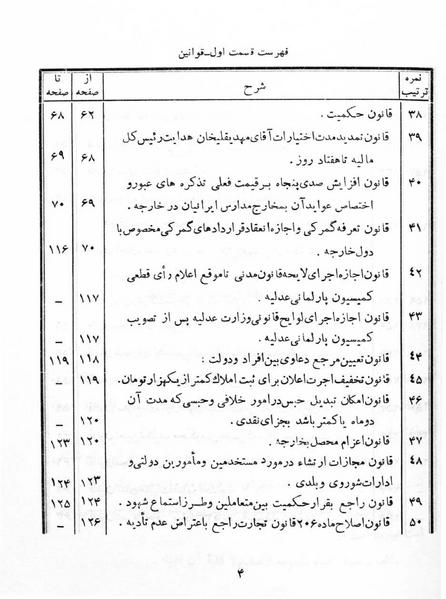 فهرست قسمت اول-قوانین
نمره ترتیب شرح از صفحه تا صفحه
۳۸ قانون حکمیت . ۶۲ ۶۸
۳۹ قانون تمدید مدت اختیارات آقای مهدیقلیخان هدایت رئیس کل
مالیه تا هفتاد روز . ۶۸ ۶۹
۴۰ قانون افزایش صدی پنجاه بر قیمت فعلی تذکره های عبور و
اختصاص عواید آن بمخارج مدارس ایرانیان در خارجه . ۶۹ ۷۰
۴۱ قانون تعرفه گمرکی و اجازه انعقاد قراردادهای گمرکی مخصوص با
دول خارجه . ۷۰ ۱۱۶
۴۲ قانون اجازه اجرای لایحه قانون مدنی تا موقع اعلام رأی قطعی
کمیسیون پارلمانی عدلیه . ۱۱۷ _
۴۳ قانون اجازه اجرای لوایح قانونی وزارت عدلیه پس از تصویب
کمیسیون پارلمانی عدلیه . ۱۱۷ _
۴۴ قانون تعیین مرجع دعاوی بین افراد و دولت : ۱۱۸ ۱۱۹
۴۵ قانون تخفیف اجرت اعلان برای ثبت املاک کمتر از یکهزار تومان. ۱۱۹ _
۴۶ قانون امکان تبدیل حبس در امور خلافی و حبسی که مدت آن
دو ماه یا کمتر باشد بجزای نقدی . ۱۲۰ _
۴۷ قانون اعزام محصل بخارجه . ۱۲۰ ۱۲۳
۴۸ قانون مجازات ارتشاء در مورد مستخدمین و مأمورین دولتی و
ادارات شوروی و بلدی . ۱۲۳ ۱۲۴
۴۹ قانون راجع بقرار حکمیت بین متعاملین و طرز استماع شهود . ۱۲۴ ۱۲۵
۵۰ قانون اصلاح ماده ۲۰۶ قانون تجارت راجع باعتراض عدم تأدیه . ۱۲۶ _
۴